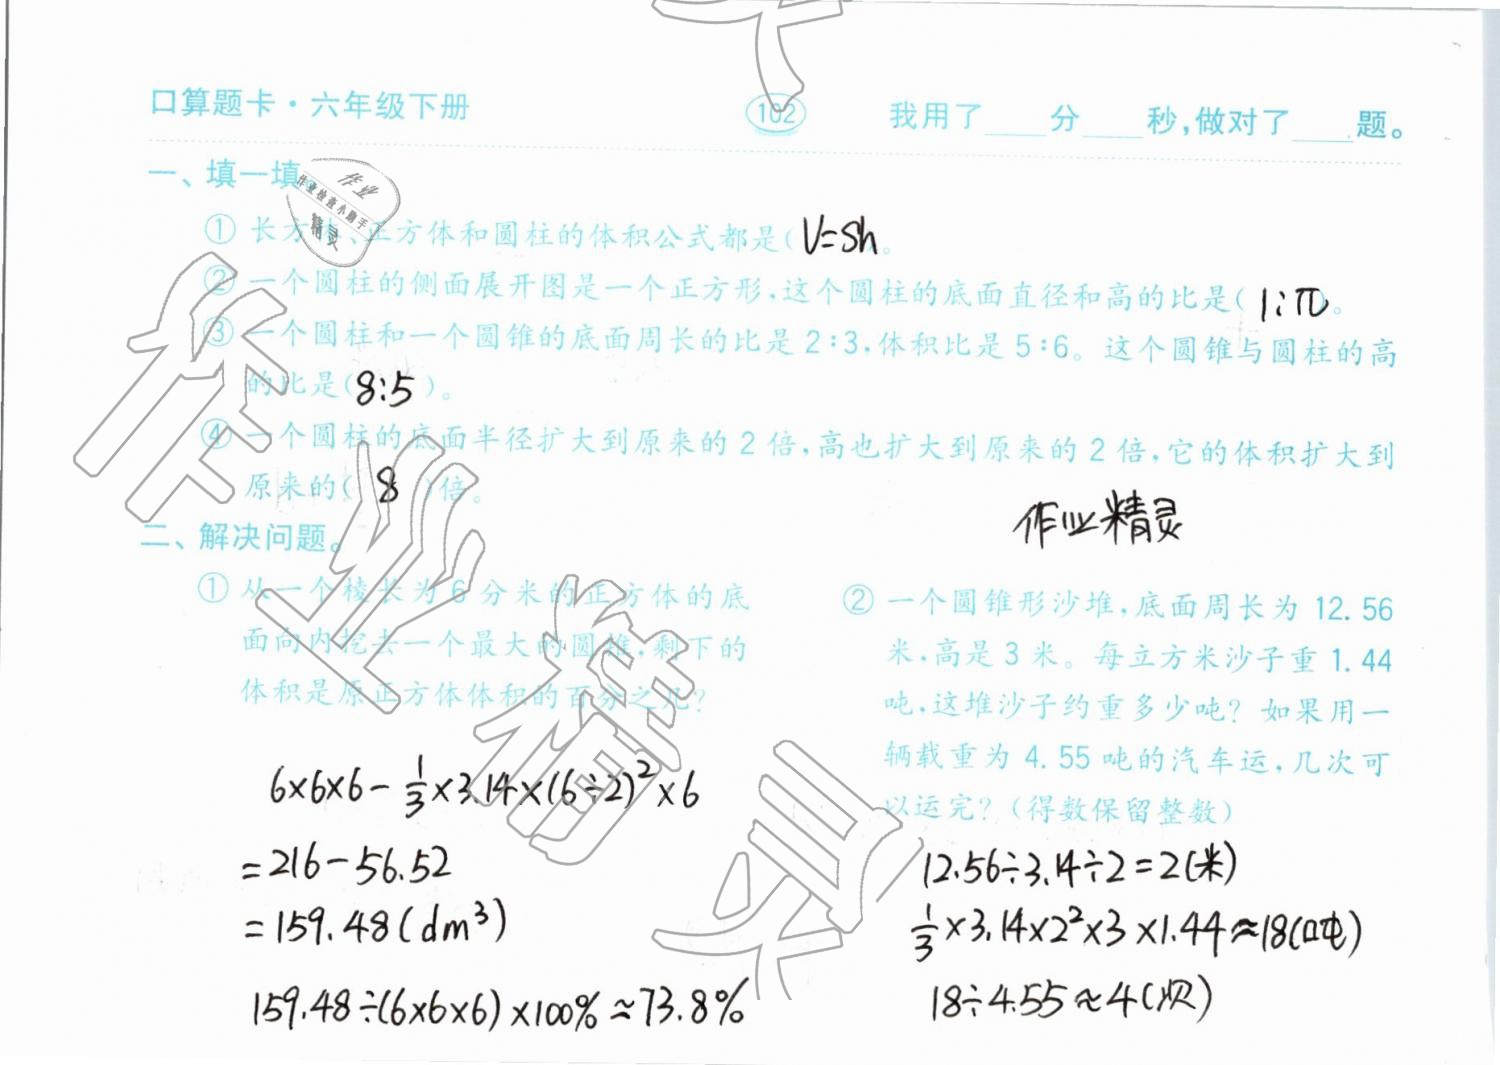 口算题卡·六年级下册 102 我用了____分____秒,做对了____题。
一、填一填。
① 长方体、正方体和圆柱的体积公式都是( V=Sh )。
② 一个圆柱的侧面展开图是一个正方形,这个圆柱的底面直径和高的比是( 1:π )。
③ 一个圆柱和一个圆锥的底面周长的比是2:3,体积比是5:6。这个圆锥与圆柱的高
的比是( 8:5 )。
④ 一个圆柱的底面半径扩大到原来的2倍,高也扩大到原来的2倍,它的体积扩大到
原来的( 8 )倍。
作业精灵
二、解决问题。
① 从一个棱长为6分米的正方体的底
面向内挖去一个最大的圆锥,剩下的
体积是原正方体体积的百分之几?
6×6×6-1/3×3.14×(6÷2)²×6
=216-56.52
=159.48(dm³)
159.48÷(6×6×6)×100%≈73.8%
② 一个圆锥形沙堆,底面周长为12.56
米,高是3米。每立方米沙子重1.44
吨,这堆沙子约重多少吨?如果用一
辆载重为4.55吨的汽车运,几次可
以运完?(得数保留整数)
12.56÷3.14÷2=2(米)
1/3×3.14×2²×3×1.44≈18(吨)
18÷4.55≈4(次)
作业
作业检查小助手
精灵
作业精灵